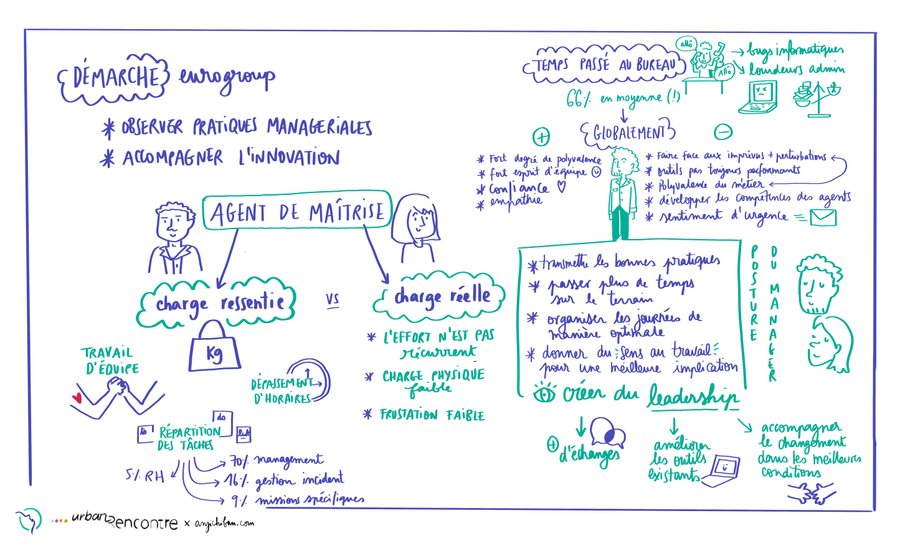 DÉMARCHE eurogroup
* OBSERVER PRATIQUES MANAGERIALES
* ACCOMPAGNER L'INNOVATION
AGENT DE MAÎTRISE
charge ressentie
vs
charge réelle
Kg
TRAVAIL
D'ÉQUIPE
DÉPASSEMENT
D'HORAIRES
* L'EFFORT N'EST PAS
récurrent
* CHARGE PHYSIQUE
faible
* FRUSTATION FAIBLE
do
RÉPARTITION
DES TÂCHES
5% RH
70% management
16% gestion incident
9% missions spécifiques
TEMPS PASSÉ AU BUREAU
Allô
Allô
bugs informatiques
lourdeurs admin
66% en moyenne (!)
GLOBALEMENT
+
* Fort degré de polyvalence
* fort esprit d'équipe
* confiance
* empathie
-
* Faire face aux imprévus + perturbations
* outils pas toujours performants
* Polyvalence du métier
* développer les compétences des agents
* sentiment d'urgence
* transmettre les bonnes pratiques
* passer plus de temps
sur le terrain
* organiser les journées de
manière optimale
* donner du sens au travail
pour une meilleure implication
POSTURE
DU MANAGER
créer du leadership
+
d'échanges
améliorer
les outils
existants
accompagner
le changement
dans les meilleures
conditions
urban rencontre x